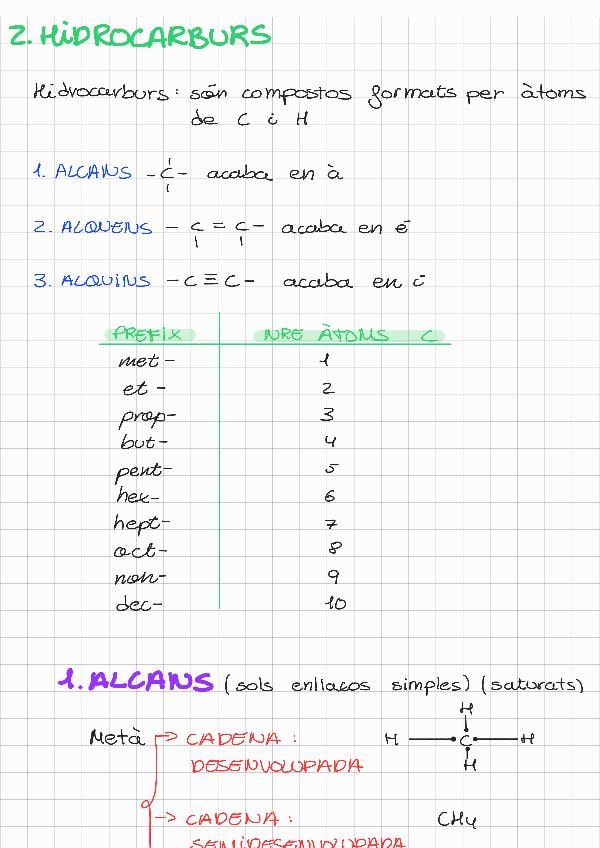 2. HiDROCARBURS
Hidrocarburs: són compostos formats per àtoms
de C i H
1. ALCANS -C- acaba en à
2. ALQUENS - C = C - acaba en é
3. ALQUiNS -C≡C- acaba en i
PREFiX NRE ÀTOMS C
met- 1
et- 2
prop- 3
but- 4
pent- 5
hex- 6
hept- 7
oct- 8
non- 9
dec- 10
1. ALCANS (sols enllaços simples) (saturats)
H
Metà → CADENA: H C H
DESENVOLUPADA H
→ CADENA: CH4
SEMiDESENVOLUPADA